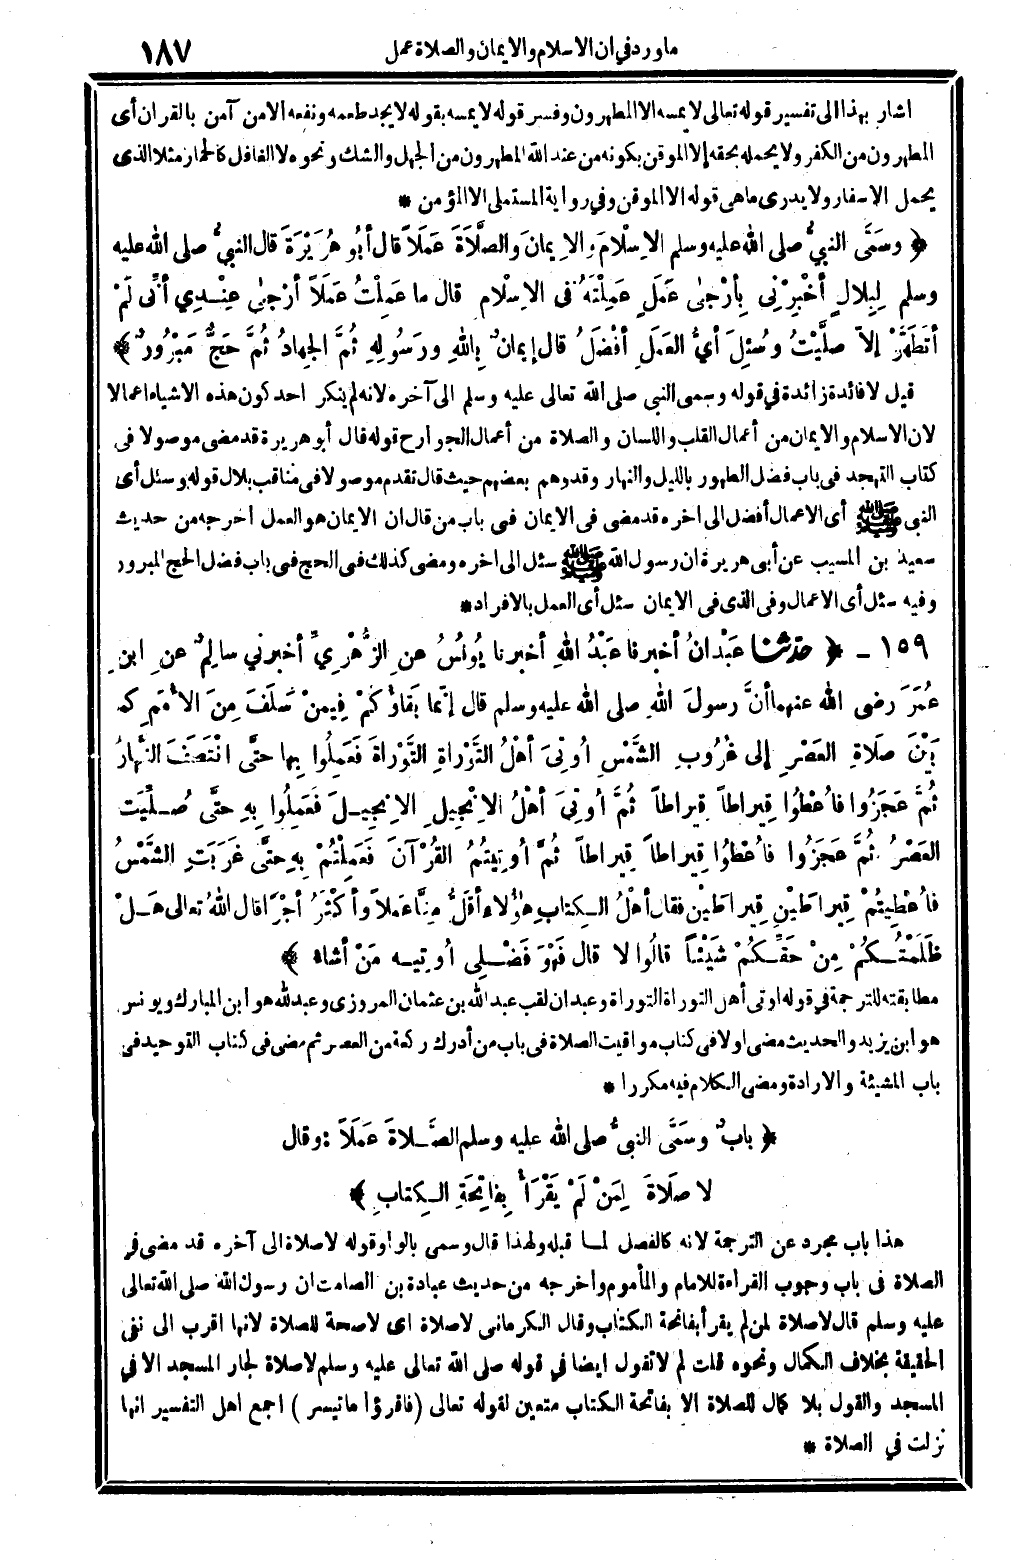 ما ورد في ان الاسلام والايمان والصلاة عمل
١٨٧
اشار بهذا الى تفسير قوله تعالى لا يمسه الا المطهرون وفسر قوله لا يمسه بقوله لا يجد طعمه ونفعه الا من آمن بالقران أى
المطهرون من الكفر ولا يحمله بحقه إلا الموقن بكونه من عند الله المطهرون من الجهل والشك ونحوه لا الغافل كالحمار مثلا الذى
يحمل الاسفار ولا يدرى ما هى قوله الا الموقن وفى رواية المستملى الا المؤمن *
﴿ وسَمَّى النبيُّ صلى الله عليه وسلم الإِسْلامَ والإِيمانَ والصَّلاَةَ عَمَلاً قال أبُو هُرَيْرَةَ قال النبيُّ صلى الله عليه
وسلم لِبِلالٍ أخْبِرْنِى بِأرْجَى عَمَلٍ عَمِلْتَهُ فى الإِسْلام قال ما عَمِلْتُ عَمَلاً أرْجَى عِنْدِي أنِّى لَمْ
أتَطَهَّرْ إلاّ صلَّيْتُ وسُئِلَ أيُّ العَمَلِ أفْضَلُ قال إيمانٌ بِاللهِ ورَسُولِهِ ثُمَّ الجِهادُ ثُمَّ حَجٌّ مَبْرُورٌ ﴾
قيل لا فائدة زائدة في قوله وسمى النبى صلى الله تعالى عليه وسلم الى آخره لانه لم ينكر احد كون هذه الاشياء اعمالا
لان الاسلام والايمان من أعمال القلب واللسان والصلاة من أعمال الجوارح قوله قال أبو هريرة قد مضى موصولا فى
كتاب التهجد فى باب فضل الطهور بالليل والنهار وقد وهم بعضهم حيث قال تقدم موصولا فى مناقب بلال قوله وسئل أى
النبى ﷺ أى الاعمال أفضل الى اخره قد مضى فى الايمان فى باب من قال ان الايمان هو العمل اخرجه من حديث
سعيد بن المسيب عن أبى هريرة ان رسول الله ﷺ سئل الى اخره ومضى كذلك فى الحج فى باب فضل الحج المبرور
وفيه سئل أى الاعمال وفى الذى فى الايمان سئل أى العمل بالافراد *
١٥٩ – ﴿ حدثنا عَبْدانُ أخبرنا عَبْدُ اللهِ أخبرنا يُونُسُ عنِ الزُّهْرِيِّ أخبرني سالِمٌ عنِ ابنِ
عُمَرَ رضى الله عنهما أنَّ رسولَ اللهِ صلى الله عليه وسلم قال إنّما بَقاؤُكُمْ فِيمنْ سَلَفَ مِنَ الأُمَمِ كما
بَيْنَ صَلاةِ العَصْرِ إلى غُرُوبِ الشَّمْسِ أُوتِىَ أهْلُ التَّوْراةِ التَّوْراةَ فَعَمِلُوا بِها حتَّى انْتَصَفَ النَّهارُ
ثُمَّ عَجَزُوا فأُعْطُوا قِيراطاً قِيراطاً ثُمَّ أُوتِىَ أهْلُ الإنْجِيلِ الإنْجِيلَ فَعَمِلُوا بِهِ حتَّى صُلِّيَت
العَصْرُ ثُمَّ عَجَزُوا فأُعْطُوا قِيراطاً قِيراطاً ثُمَّ أُوتِيتُمُ القُرْآنَ فَعَمِلْتُمْ بِهِ حتَّى غَرَبَتِ الشَّمْسُ
فأُعْطِيتُمْ قِيراطَيْنِ قِيراطَيْنِ فقال أهْلُ الكِتابِ هؤُلاءِ أقَلُّ مِنَّا عَمَلاً وأكْثَرُ أجْرًا قال اللهُ تعالى هَلْ
ظَلَمْتُكُمْ مِنْ حَقِّكُمْ شَيْئاً قالُوا لا قال فَهْوَ فَضْلِى أُوتِيهِ مَنْ أشاء ﴾
مطابقته للترجمة في قوله اوتى أهل التوراة التوراة وعبدان لقب عبد الله بن عثمان المروزى وعبد لله هو ابن المبارك ويونس
هو ابن يزيد والحديث مضى اولا فى كتاب مواقيت الصلاة فى باب من أدرك ركعة من العصر ثم مضى فى كتاب التوحيد فى
باب المشيئة والارادة ومضى الكلام فيه مكررا *
﴿ بابٌ وسَمَّى النبيُّ صلى الله عليه وسلم الصَّلاةَ عَمَلاً : وقال
لا صَلاةَ لِمَنْ لَمْ يَقْرَأْ بِفاتِحَةِ الكِتابِ ﴾
هذا باب مجرد عن الترجمة لانه كالفصل لما قبله ولهذا قال وسمى بالواو قوله لا صلاة الى آخره قد مضى فى
الصلاة فى باب وجوب القراءة للامام والمأموم وأخرجه من حديث عبادة بن الصامت ان رسول الله صلى الله تعالى
عليه وسلم قال لا صلاة لمن لم يقرأ بفاتحة الكتاب وقال الكرمانى لا صلاة اى لا صحة للصلاة لانها اقرب الى نفى
الحقيقة بخلاف الكمال ونحوه قلت لم لا تقول ايضا في قوله صلى الله تعالى عليه وسلم لا صلاة لجار المسجد الا في
المسجد والقول بلا كمال للصلاة الا بفاتحة الكتاب متعين لقوله تعالى (فاقرؤا ما تيسر) اجمع اهل التفسير انها
نزلت في الصلاة *